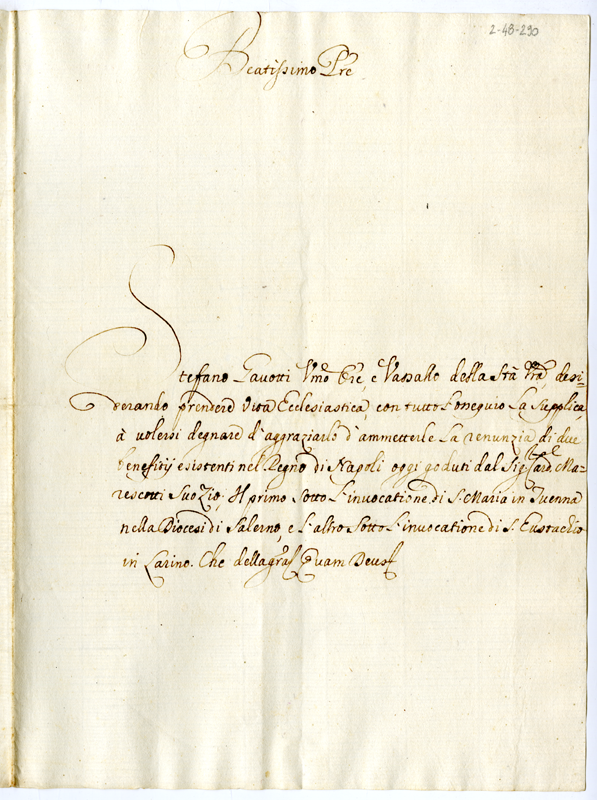 2-48-290
Beatissimo Pre
Stefano Gavotti Umo Ore, e Vassallo della Stà Vrã, desi=
derando prendere Vita Ecclesiastica con tutto l'ossequio La Supplica,
à volersi degnare d'aggraziarlo d'ammetterle La renunzia di due
benefitij esistenti nel Regno di Napoli oggi goduti dal Sig.r Card.l Ma=
rescotti Suo Zio; Il primo Sotto L'invocatione di S. Maria in
nella Diocesi di Salerno, e L'altro Sotto L'invocatione di S. Eustachio
in Larino. Che della gra quam Deus